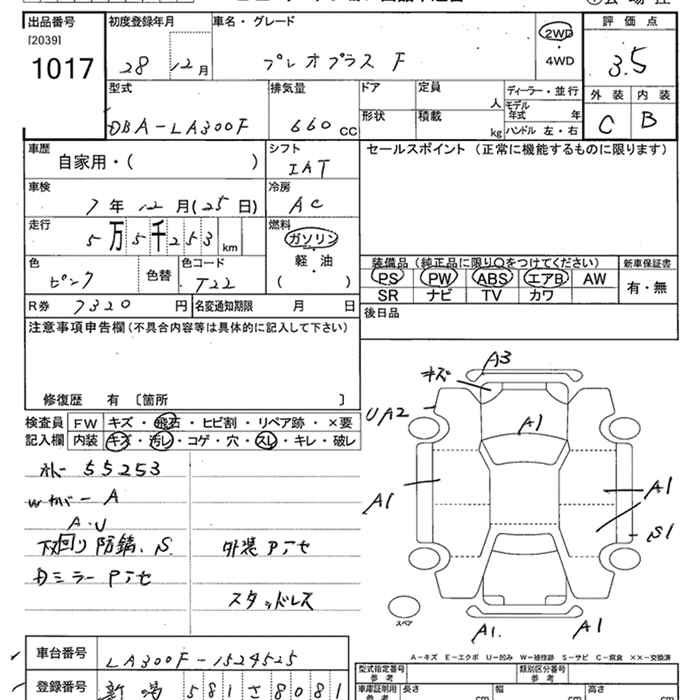 出品番号 初度登録年月 車名・グレード 評価点
[2039] 1017 28 12月 プレオプラス F 2WD・4WD 3.5
型式 排気量 ドア 定員 人 ディーラー・並行 外装 内装
DBA-LA300F 660 CC 形状 積載 kg モデル年式 年 ハンドル 左・右 C B
車歴 シフト セールスポイント (正常に機能するものに限ります)
自家用・( ) IAT
車検 冷房
7年12月(25日) AC
走行 燃料
5万5千253 km ガソリン・軽油
色 色替 色コード ( ) 装備品 (純正品に限り〇をつけてください) 新車保証書
ピンク T22 PS PW ABS エアB AW 有・無
R券 7320円 名変通知期限 月 日 SR ナビ TV カワ
注意事項申告欄(不具合内容等は具体的に記入して下さい) 後日品
修復歴 有 〔箇所 〕
検査員 FW キズ・飛石・ヒビ割・リペア跡・×要
記入欄 内装 キズ・汚レ・コゲ・穴・スレ・キレ・破レ
A3
キズ
UA2
A1
A1
A1
S1
A1. A1
スペア
オドー 55253
Wカバー A
A・U
下回り防錆、S 外装Pテセ
Dミラー Pテセ
スタッドレス
A-キズ E-エクボ U-凹み W-補修跡 S-サビ C-腐食 ××-交換済
車台番号 LA300F-1524525 型式指定番号 参考 類別区分番号 参考
登録番号 新潟 581 さ 8081 車庫証明用 参考 長さ cm 幅 cm 高さ cm